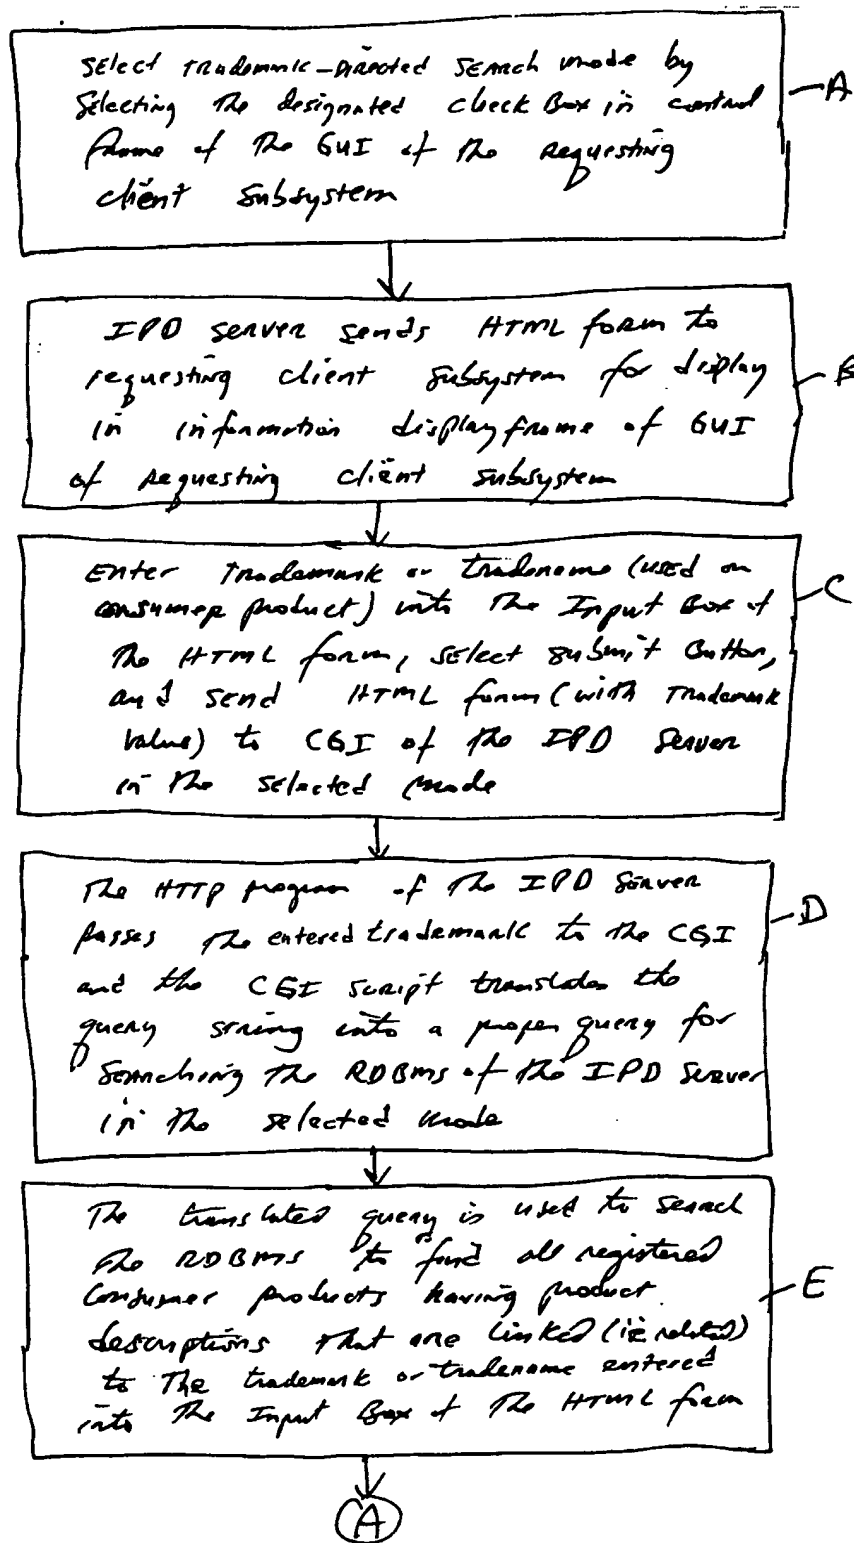 Select Trademark-Directed Search mode by
Selecting the designated check Box in control
frame of the GUI of the requesting
client Subsystem
A
IPD Server sends HTML form to
requesting client Subsystem for display
in information display frame of GUI
of requesting client Subsystem
B
Enter Trademark or tradename (used on
consumer product) into the Input Box of
the HTML form, select submit Button,
and send HTML form (with Trademark
value) to CGI of the IPD Server
in the selected mode
C
The HTTP program of the IPD Server
passes the entered trademark to the CGI
and the CGI script translates the
query string into a proper query for
Searching the RDBMS of the IPD Server
in the selected mode
D
The translated query is used to search
the RDBMS to find all registered
Consumer products having product
descriptions that are linked (ie related)
to the trademark or tradename entered
into the Input Box of the HTML form
E
A